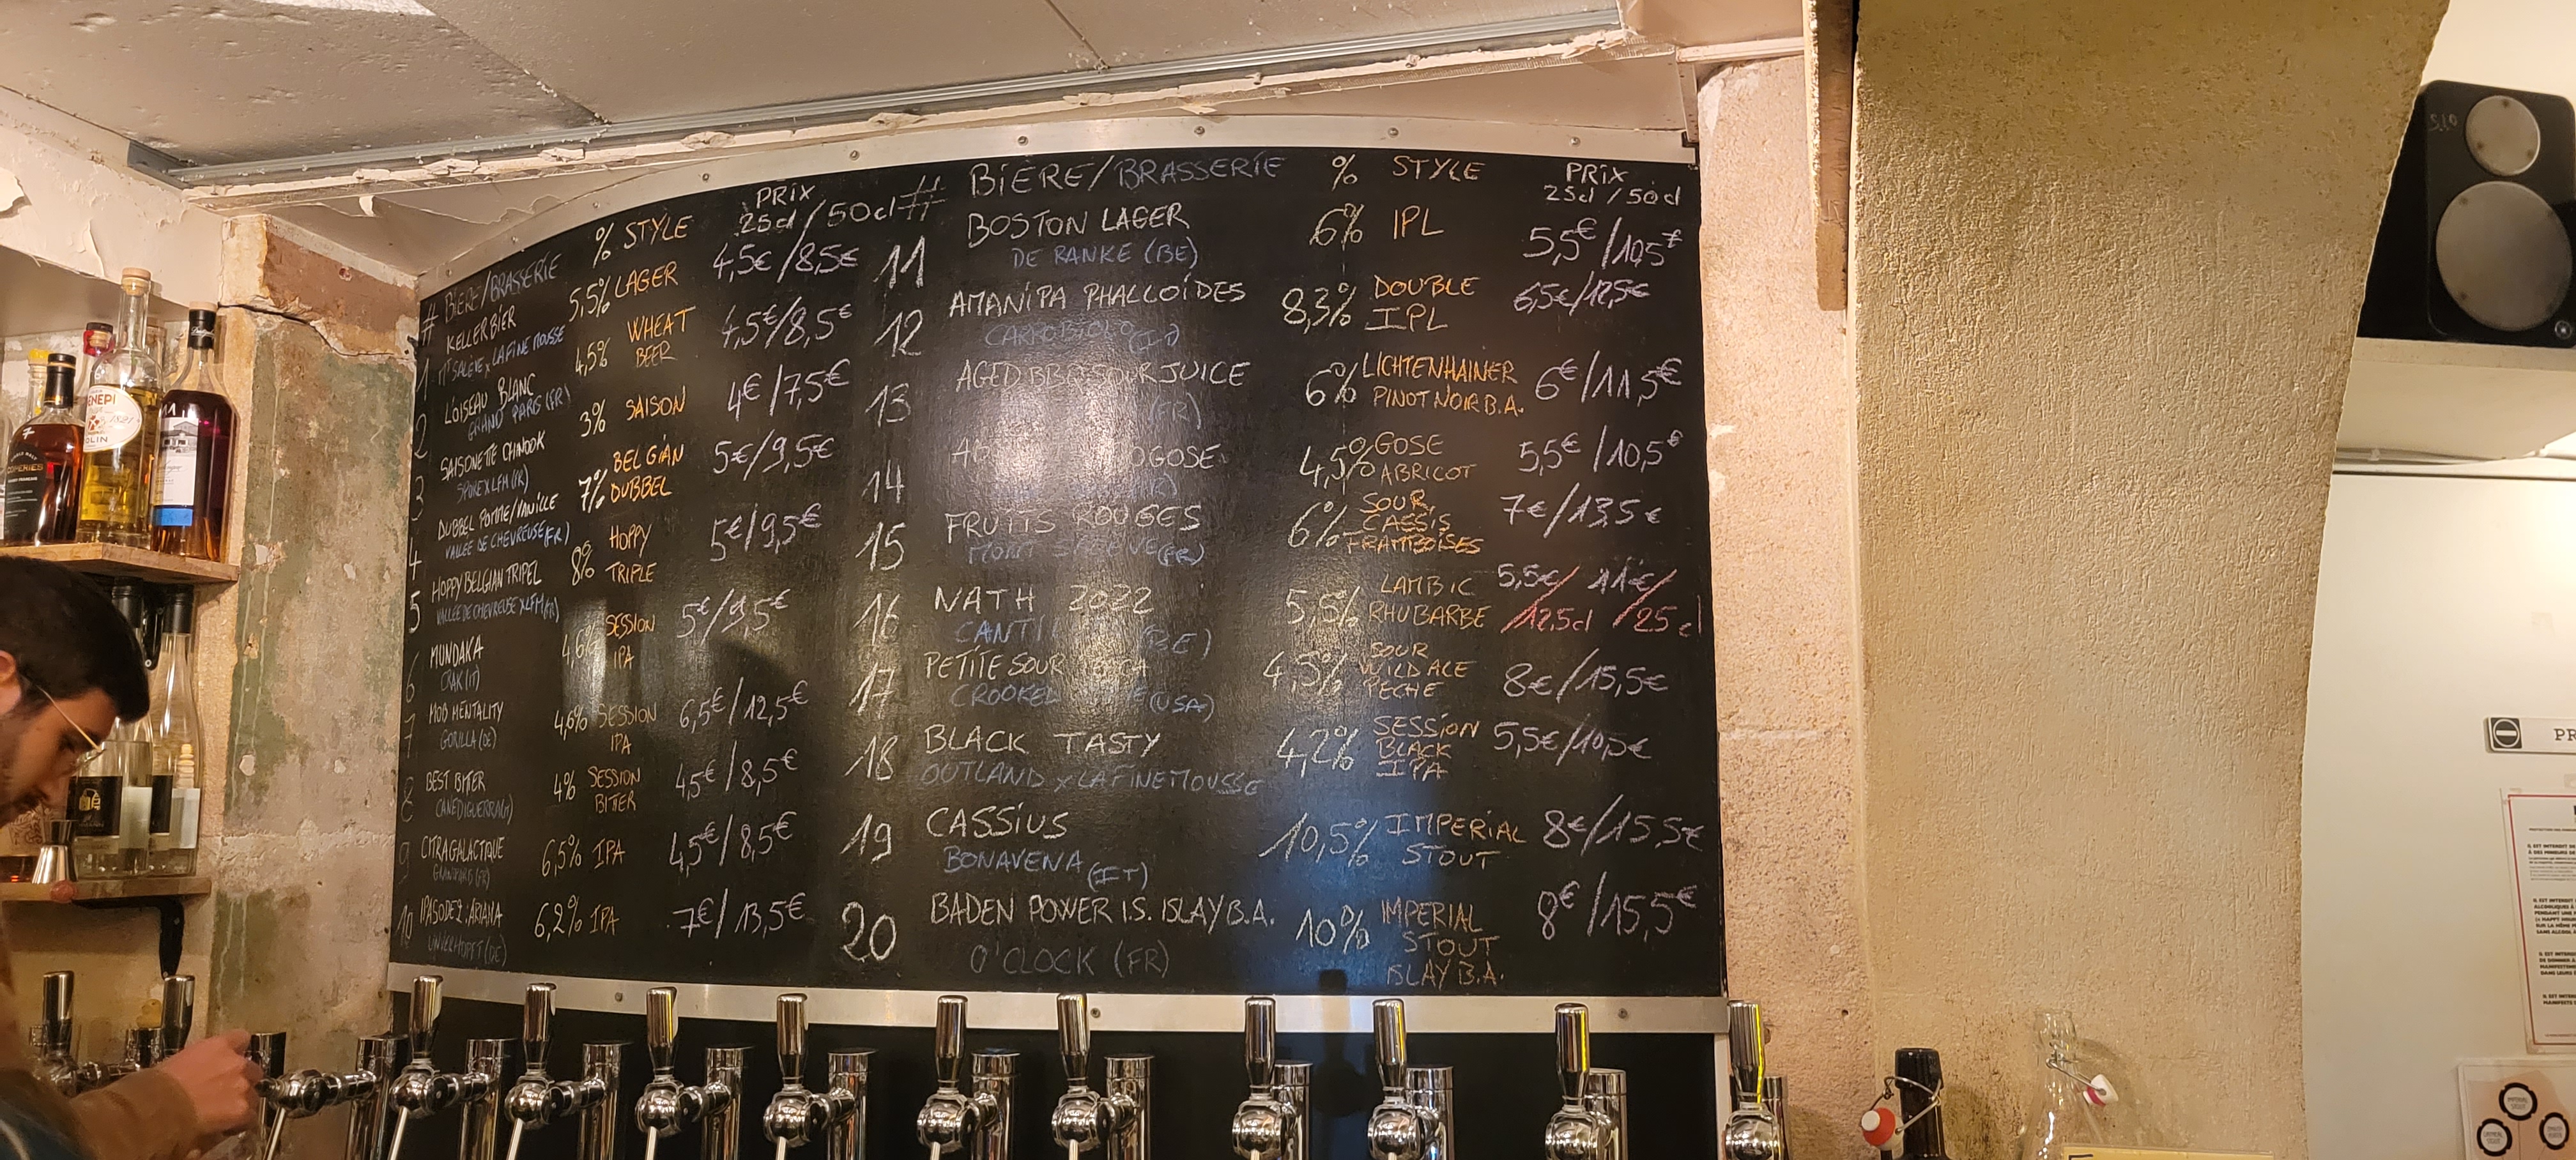 # BIÈRE/BRASSERIE % STYLE PRIX 25cl/50cl
1 KELLERBIER 5,5% LAGER 4,5€/8,5€
MT SALÈVE x LA FINE MOUSSE
2 L'OISEAU BLANC 4,5% WHEAT BEER 4,5€/8,5€
GRAND PARIS (FR)
3 SAISONETTE CHINOOK 3% SAISON 4€/7,5€
SPORE X LFM (FR)
4 DUBBEL POMME/VANILLE 7% BELGIAN DUBBEL 5€/9,5€
VALLÉE DE CHEVREUSE (FR)
5 HOPPY BELGIAN TRIPEL 8% HOPPY TRIPLE 5€/9,5€
VALLÉE DE CHEVREUSE X LFM (FR)
6 MUNDAKA 4,6% SESSION IPA 5€/9,5€
CRAK (IT)
7 MOB MENTALITY 4,6% SESSION IPA 6,5€/12,5€
GORILLA (DE)
8 BEST BITER 4% SESSION BITER 4,5€/8,5€
CANEDIGUERRA (IT)
9 CITRA GALACTIQUE 6,5% IPA 4,5€/8,5€
GRAND PARIS (FR)
10 ARIANA 6,2% IPA 7€/13,5€
UNVERHOFFT (DE)
# BIÈRE/BRASSERIE % STYLE PRIX 25cl/50cl
11 BOSTON LAGER 6% IPL 5,5€/10,5€
DE RANKE (BE)
12 AMANIPA PHALLOÏDES 8,3% DOUBLE IPL 6,5€/12,5€
CARROBIOLO (IT)
13 AGED BBB SOUR JUICE 6% LICHTENHAINER PINOT NOIR B.A. 6€/11,5€
(FR)
14 GOSE 4,5% GOSE ABRICOT 5,5€/10,5€
15 FRUITS ROUGES 6% SOUR, CASSIS FRAMBOISES 7€/13,5€
MONT SALÈVE (FR)
16 NATH 2022 5,5% LAMBIC RHUBARBE 5,5€/12,5cl 11€/25cl
(BE)
17 PETITE SOUR 4,5% SOUR WILD ALE PECHE 8€/15,5€
CROOKED (USA)
18 BLACK TASTY 4,2% SESSION BLACK IPA 5,5€/10,5€
OUTLAND x LA FINE MOUSSE
19 CASSIUS 10,5% IMPERIAL STOUT 8€/15,5€
BONAVENA (IT)
20 BADEN POWER I.S. ISLAY B.A. 10% IMPERIAL STOUT ISLAY B.A. 8€/15,5€
O'CLOCK (FR)
PR